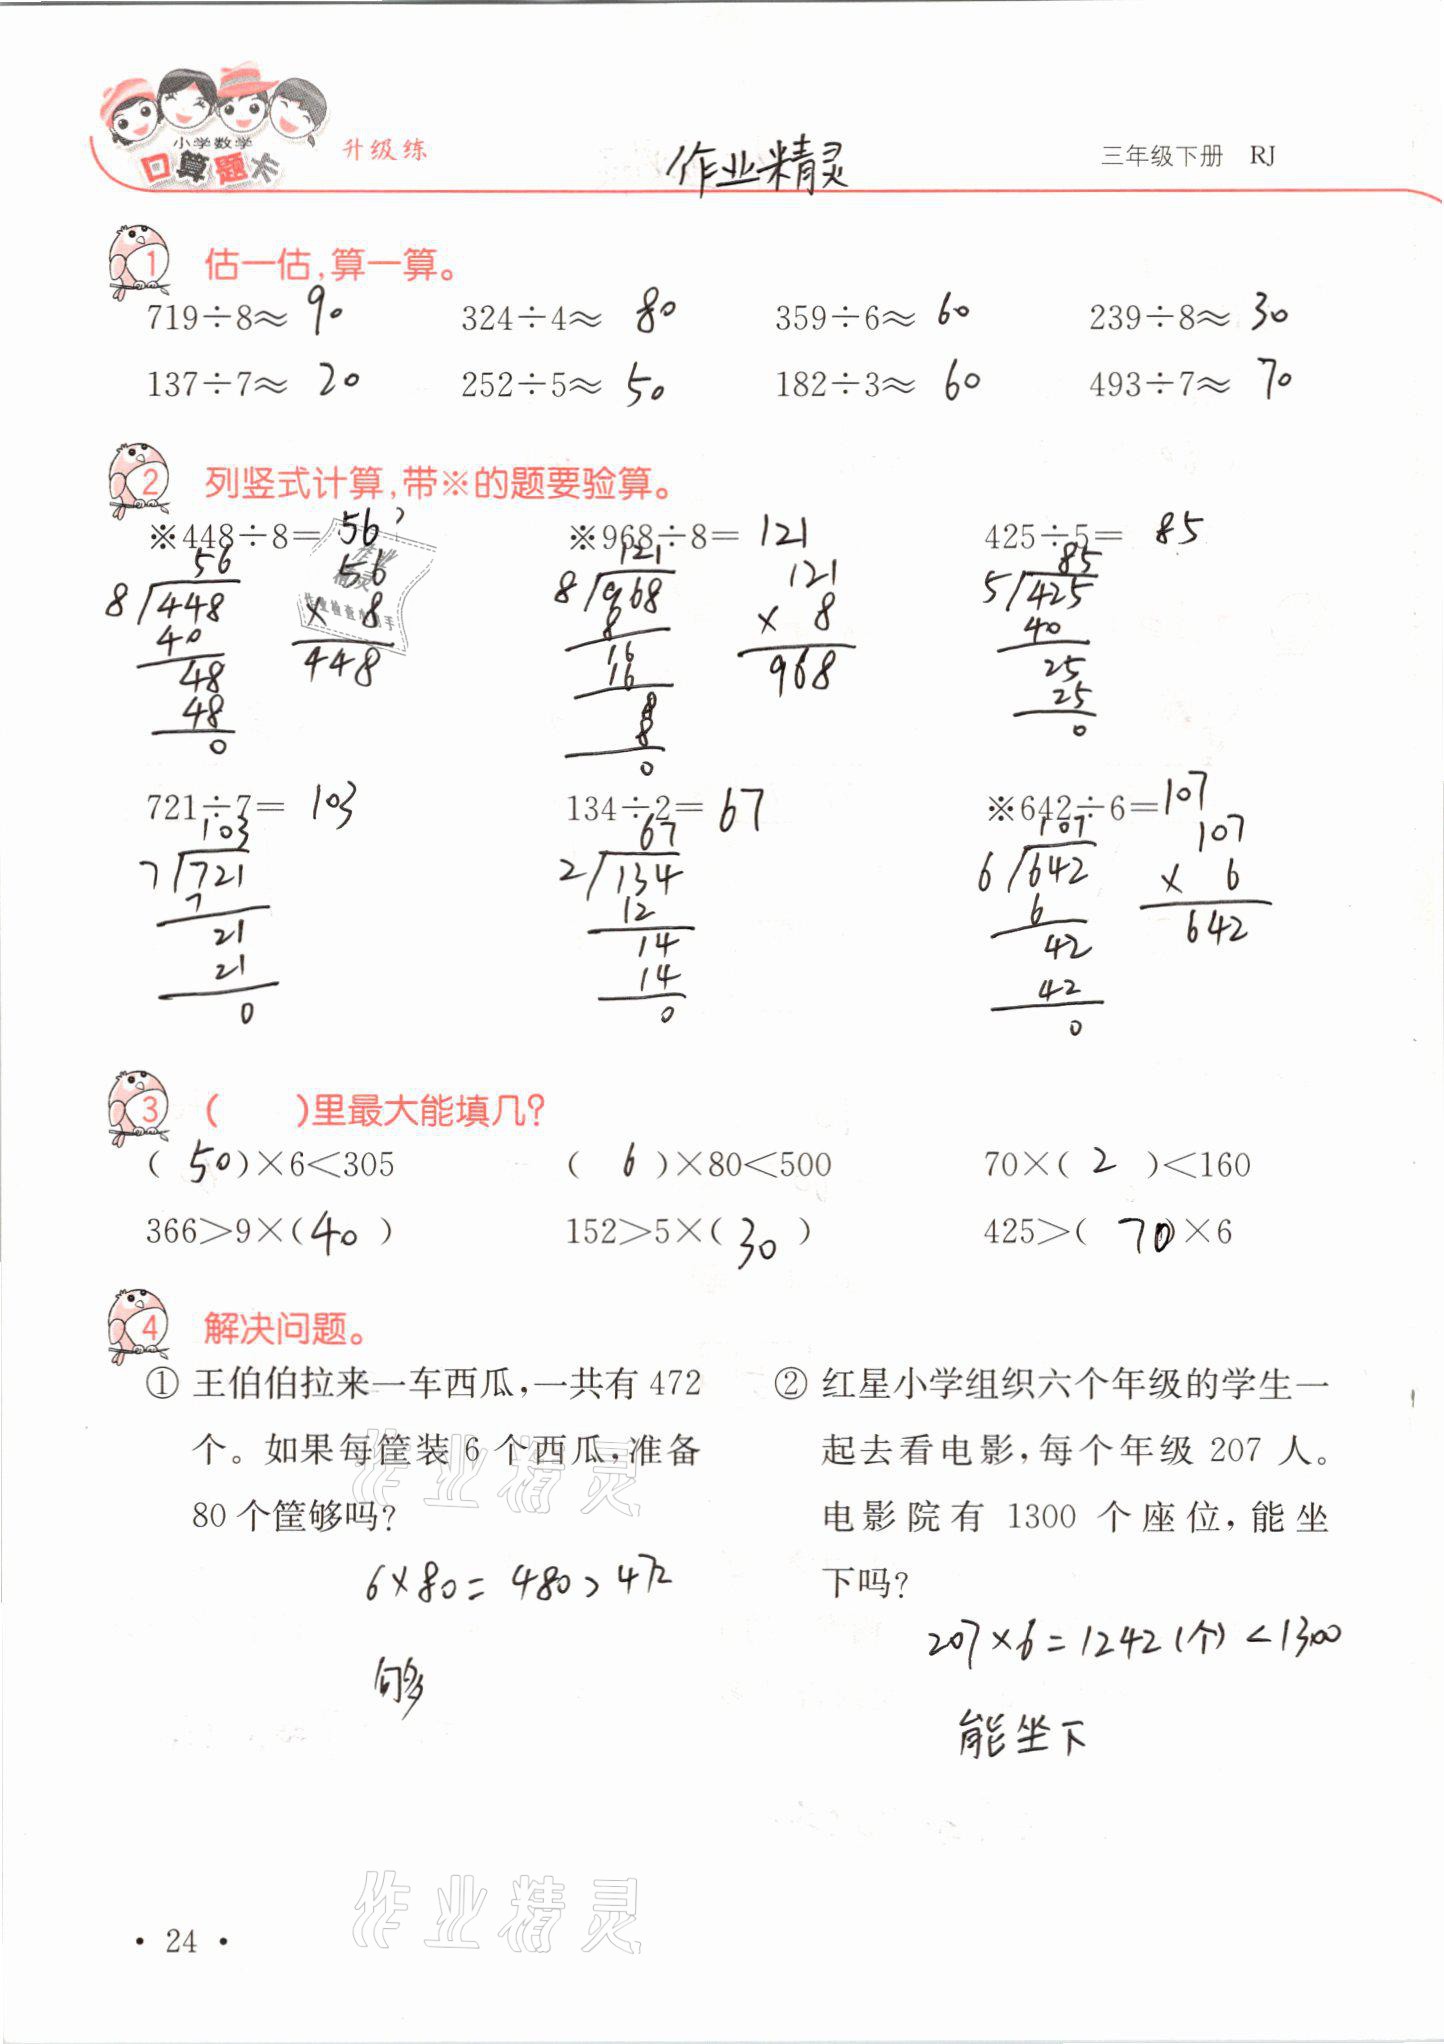 小学数学
口算题卡 升级练 作业精灵 三年级下册 RJ
1 估一估,算一算。
719÷8≈ 90 324÷4≈ 80 359÷6≈ 60 239÷8≈ 30
137÷7≈ 20 252÷5≈ 50 182÷3≈ 60 493÷7≈ 70
2 列竖式计算,带※的题要验算。
※448÷8= 56 ※968÷8= 121 425÷5= 85
56 56 121 121 85
8 448 × 8 8 968 × 8 5 425
40 448 8 968 40
48 16 25
48 16 25
0 8 0
8
0
721÷7= 103 134÷2= 67 ※642÷6= 107
103 67 107 107
7 721 2 134 6 642 × 6
7 12 6 642
21 14 42
21 14 42
0 0 0
3 ( )里最大能填几?
( 50 )×6<305 ( 6 )×80<500 70×( 2 )<160
366>9×( 40 ) 152>5×( 30 ) 425>( 70 )×6
4 解决问题。
① 王伯伯拉来一车西瓜,一共有 472
个。如果每筐装 6 个西瓜,准备
80 个筐够吗?
6×80=480>472
够
② 红星小学组织六个年级的学生一
起去看电影,每个年级 207 人。
电影院有 1300 个座位,能坐
下吗?
207×6=1242(个)<1300
能坐下
作业精灵
作业精灵
作业
精灵
作业检查小助手
· 24 ·